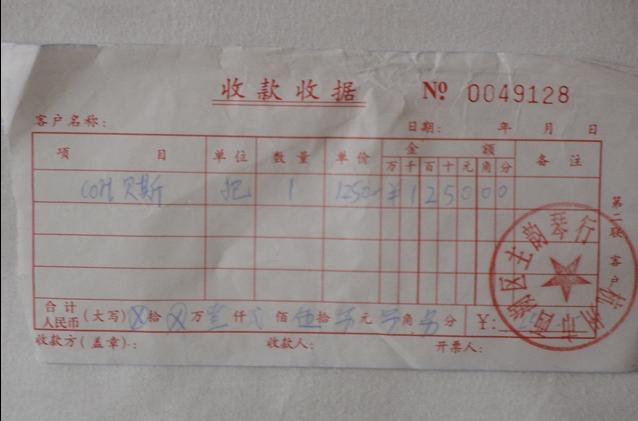 收款收据 № 0049128
客户名称: 日期: 年 月 日
项 目 单位 数量 单价 金 额 备 注
万 千 百 十 元 角 分
贝斯 把 1 1250 ¥ 1 2 5 0 0 0
合计人民币 (大写) 拾 万 壹 仟 佰 伍 拾 元 角 分 ¥:
收款方(盖章): 收款人: 开票人:
第二联 客户
杭州市西湖区主韵琴行